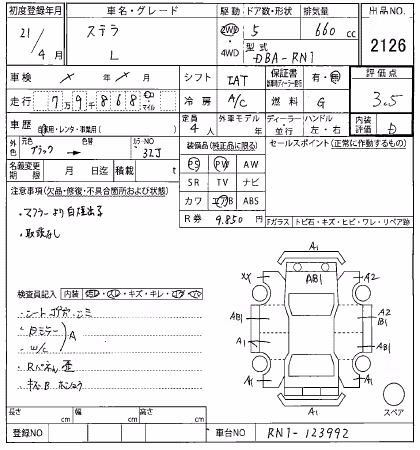 初度登録年月 車名・グレード 駆動 ドア数・形状 排気量 出品NO.
21/4月 ステラ L 2WD 4WD 5 660 cc 2126
型式 DBA-RN1
車検 シフト IAT 保証書 有・無 評価点 3.5
走行 7万9千868 マイル 冷房 A/C 燃料 G
車歴 自家用・レンタ・事業用( ) 定員 4人 外車モデル ディーラー・並行 ハンドル 左・右 内装評価 D
外色 元色 ブラック 色替 カラーNO 32J 装備品(純正品に限る) セールスポイント(正常に作動するもの)
名義変更期限 月 日迄 積載 t
PS PW AW
SR TV ナビ
カワ エアB ABS
R券 9,850円
注意事項(欠品・修復・不具合箇所および状態)
・マフラーより自排出る
・取説なし
Fガラス トビ石・キズ・ヒビ・ワレ・リペア跡
検査員記入 内装
・シートコゲ
A
・Rパネル歪
A1
XX AB1 A2
AB1 A2 B1
A1 AB1
A1 A1
A1
スペア
長さ cm 幅 cm 高さ cm
登録NO 車台NO RN1-123992